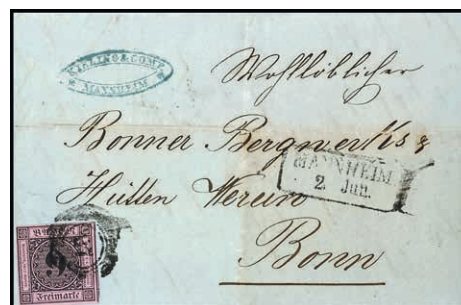 & COMP
MANNHEIM
Wohllöblicher
Bonner Bergwerks &
Hütten Verein
MANNHEIM
2 Jun.
Bonn
Baden
9
Freimarke